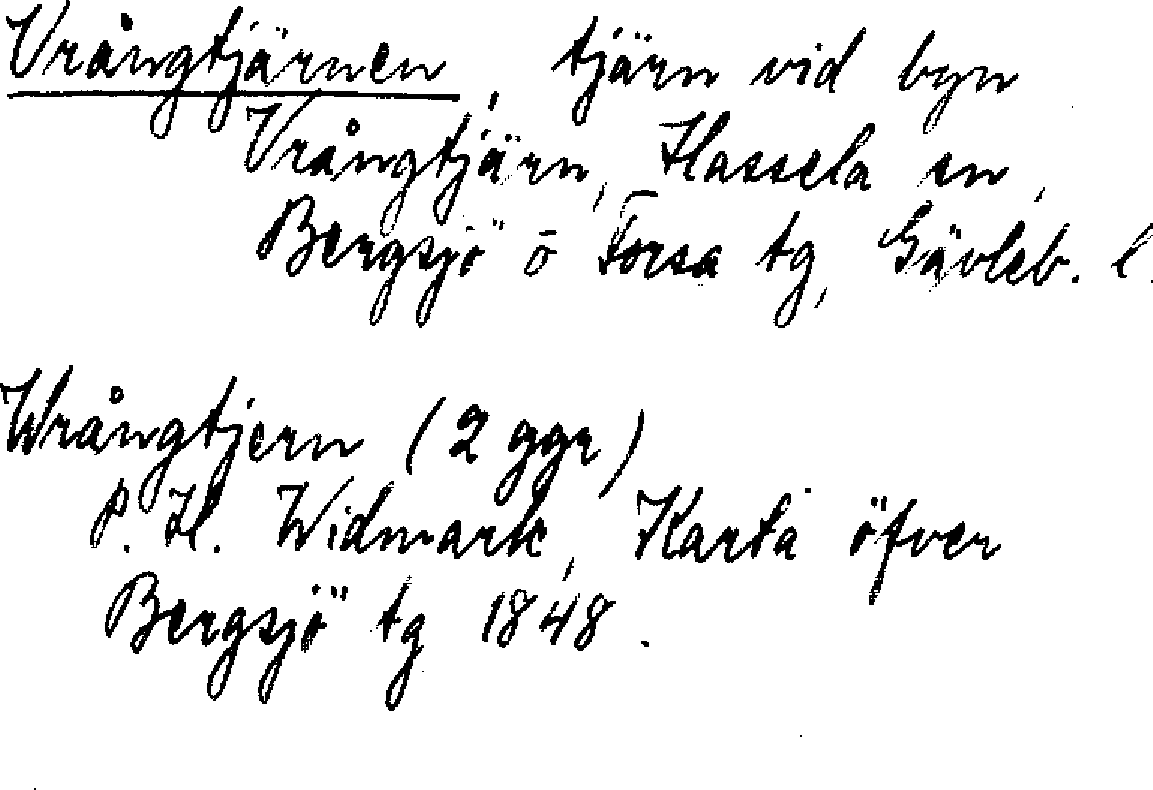 Vrångtjärnen, tjärn vid byn
Vrångtjärn, Hassela sn,
Bergsjö ō Forsa tg, Gävleb. l.
Wrångtjern (2 ggr)
P. H. Widmark, Karta öfver
Bergsjö tg 1848.